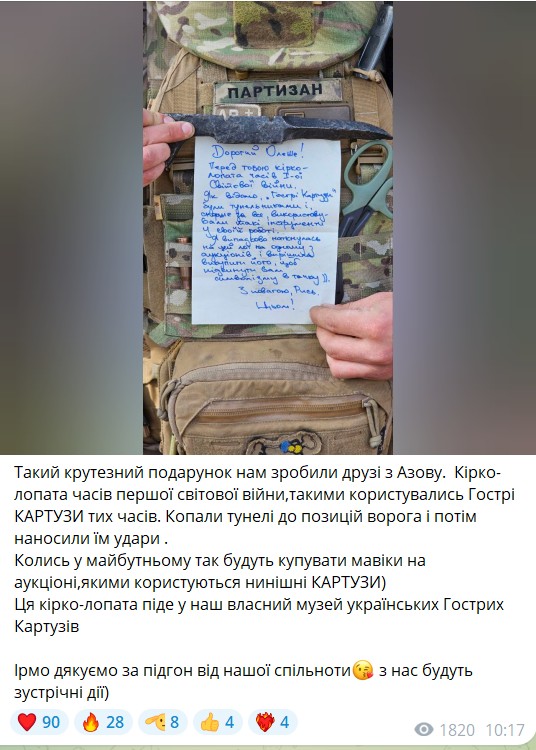 ПАРТИЗАН
Дорогий Олеше!
Перед тобою кірко-
лопата часів І-ої
Світової війни.
Як відомо, „Гострі Картузи"
були тунельниками і,
скоріше за все використову-
вали такі інструменти
у своїй роботі.
Я випадково натокнулась
на цей лот на одному з
аукціонів і вирішила
викупити його, щоб
підкинути вам
символізму в тачку )).
З повагою, Рись.
Цьом!
Такий крутезний подарунок нам зробили друзі з Азову. Кірко-
лопата часів першої світової війни,такими користувались Гострі
КАРТУЗИ тих часів. Копали тунелі до позицій ворога і потім
наносили їм удари .
Колись у майбутньому так будуть купувати мавіки на
аукціоні,якими користуються нинішні КАРТУЗИ)
Ця кірко-лопата піде у наш власний музей українських Гострих
Картузів
Ірмо дякуємо за підгон від нашої спільноти😘 з нас будуть
зустрічні дії)
❤ 90 🔥 28 🫡 8 👍 4 ❤️‍🔥 4
1820 10:17